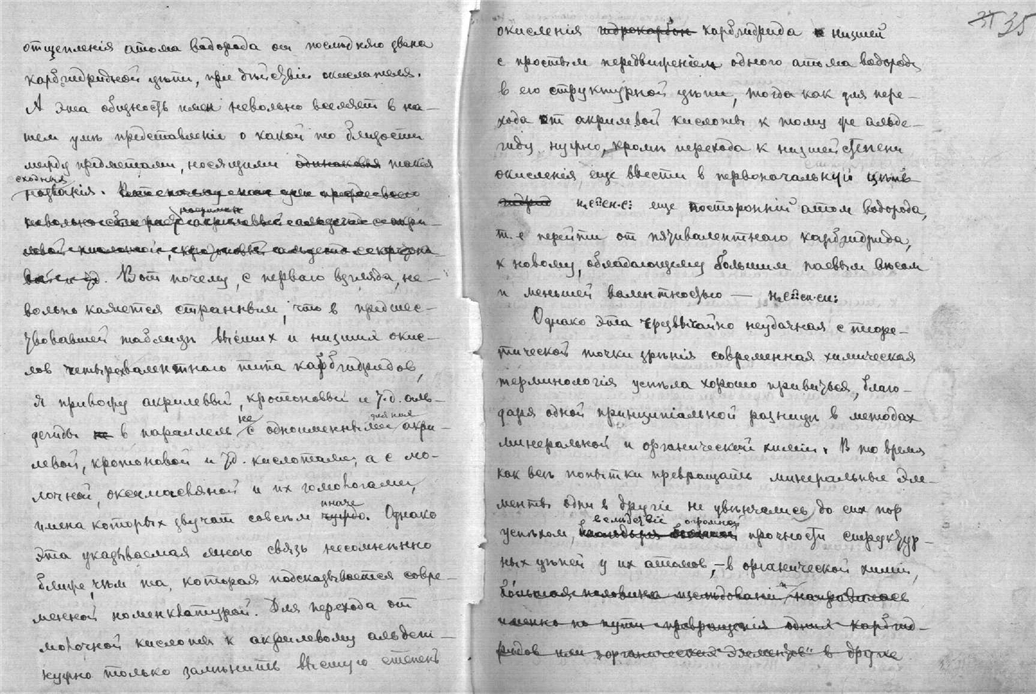 отщепленія атома водорода от послѣдняго звена
карбгидридной цѣпи, при дѣйствіи окислителя.
А эта общность имен невольно вселяет в на-
шем умѣ представленіе о какой то близости
между предметами, носящими такія
сходныя
названія.
Вот почему, с перваго взгляда, не-
вольно кажется странным, что в предшес-
твовавшей таблицѣ высших и низших окис-
лов четырехвалентнаго типа карбгидридов,
я привожу акрилевый, кротоновый и т.д. аль-
дегиды не в параллель с одноименными акри-
левой, кротоновой и т.д. кислотами, а с мо-
лочной, оксимасляной и их гомологами,
имена которых звучат совсѣм иначе. Однако
эта указываемая мною связь несомнѣнно
ближе, чѣм та, которая подсказывается совре-
менной номенклатурой. Для перехода от
молочной кислоты к акрилевому альдегиду
нужно только замѣнить высшую степень
35
окисленія карбгидрида низшей
с простым передвиженіем одного атома водорода
в его структурной цѣпи, тогда как для пере-
хода от акрилевой кислоты к тому же альде-
гиду нужно, кромѣ перехода к низшей степени
окисленія еще ввести в первоначальную цѣпь
еще посторонній атом водорода,
т.е перейти от пятивалентнаго карбгидрида,
к новому, обладающему большим паевым вѣсом
и меньшей валентностью —
Однако эта чрезвычайно неудачная с теоре-
тической точки зрѣнія современная химическая
терминологія успѣла хорошо привиться, благо-
даря одной принципіальной разницѣ в методах
минеральной и органической химіи. В то время
как всѣ попытки превращать минеральные эле-
менты одни в другіе не увѣнчались до сих пор
успѣхом, вслѣдствіе огромной прочности структур-
ных цѣпей у их атомов, — в органической химіи,
большая половина изслѣдованій направлялась
именно по пути превращенія одних карбгид-
ридов или "органических элементов" в другіе